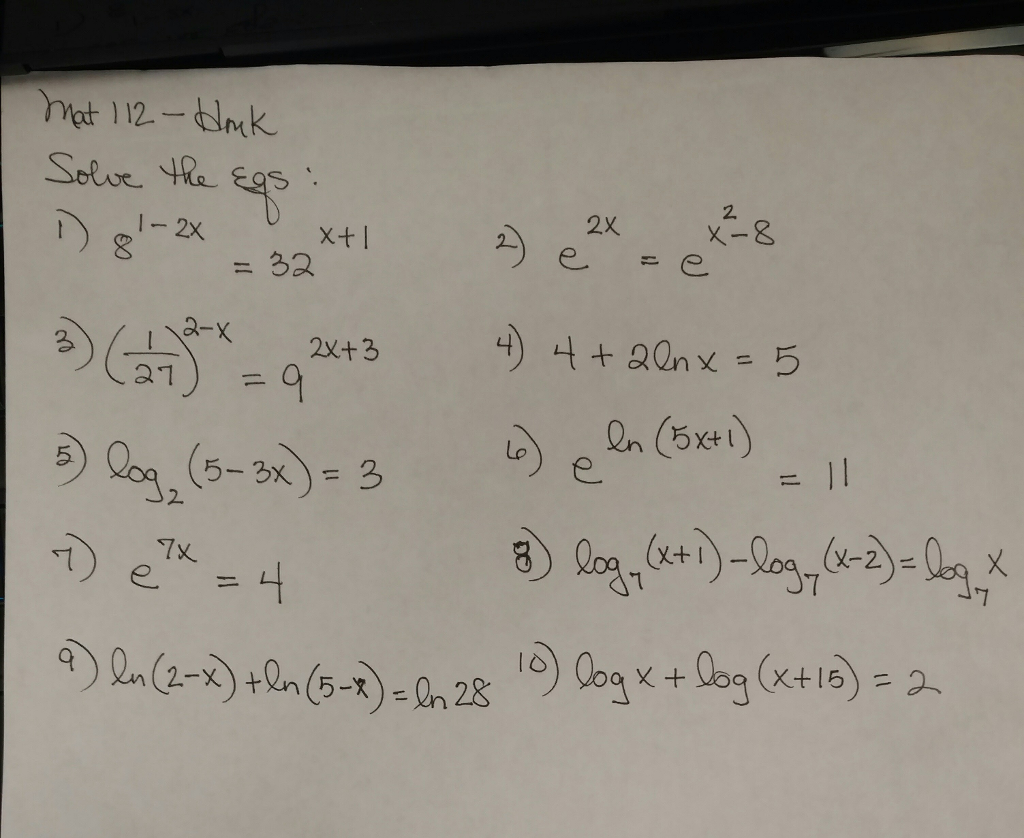 Mat 112 - Hmk
Solve the Eqs :
1) 8^{1-2x} = 32^{x+1}
2) e^{2x} = e^{x^2-8}
3) (1/27)^{2-x} = 9^{2x+3}
4) 4 + 2ln x = 5
5) log_2 (5-3x) = 3
6) e^{ln (5x+1)} = 11
7) e^{7x} = 4
8) log_7 (x+1) - log_7 (x-2) = log_7 x
9) ln(2-x) + ln(5-x) = ln 28
10) log x + log (x+15) = 2